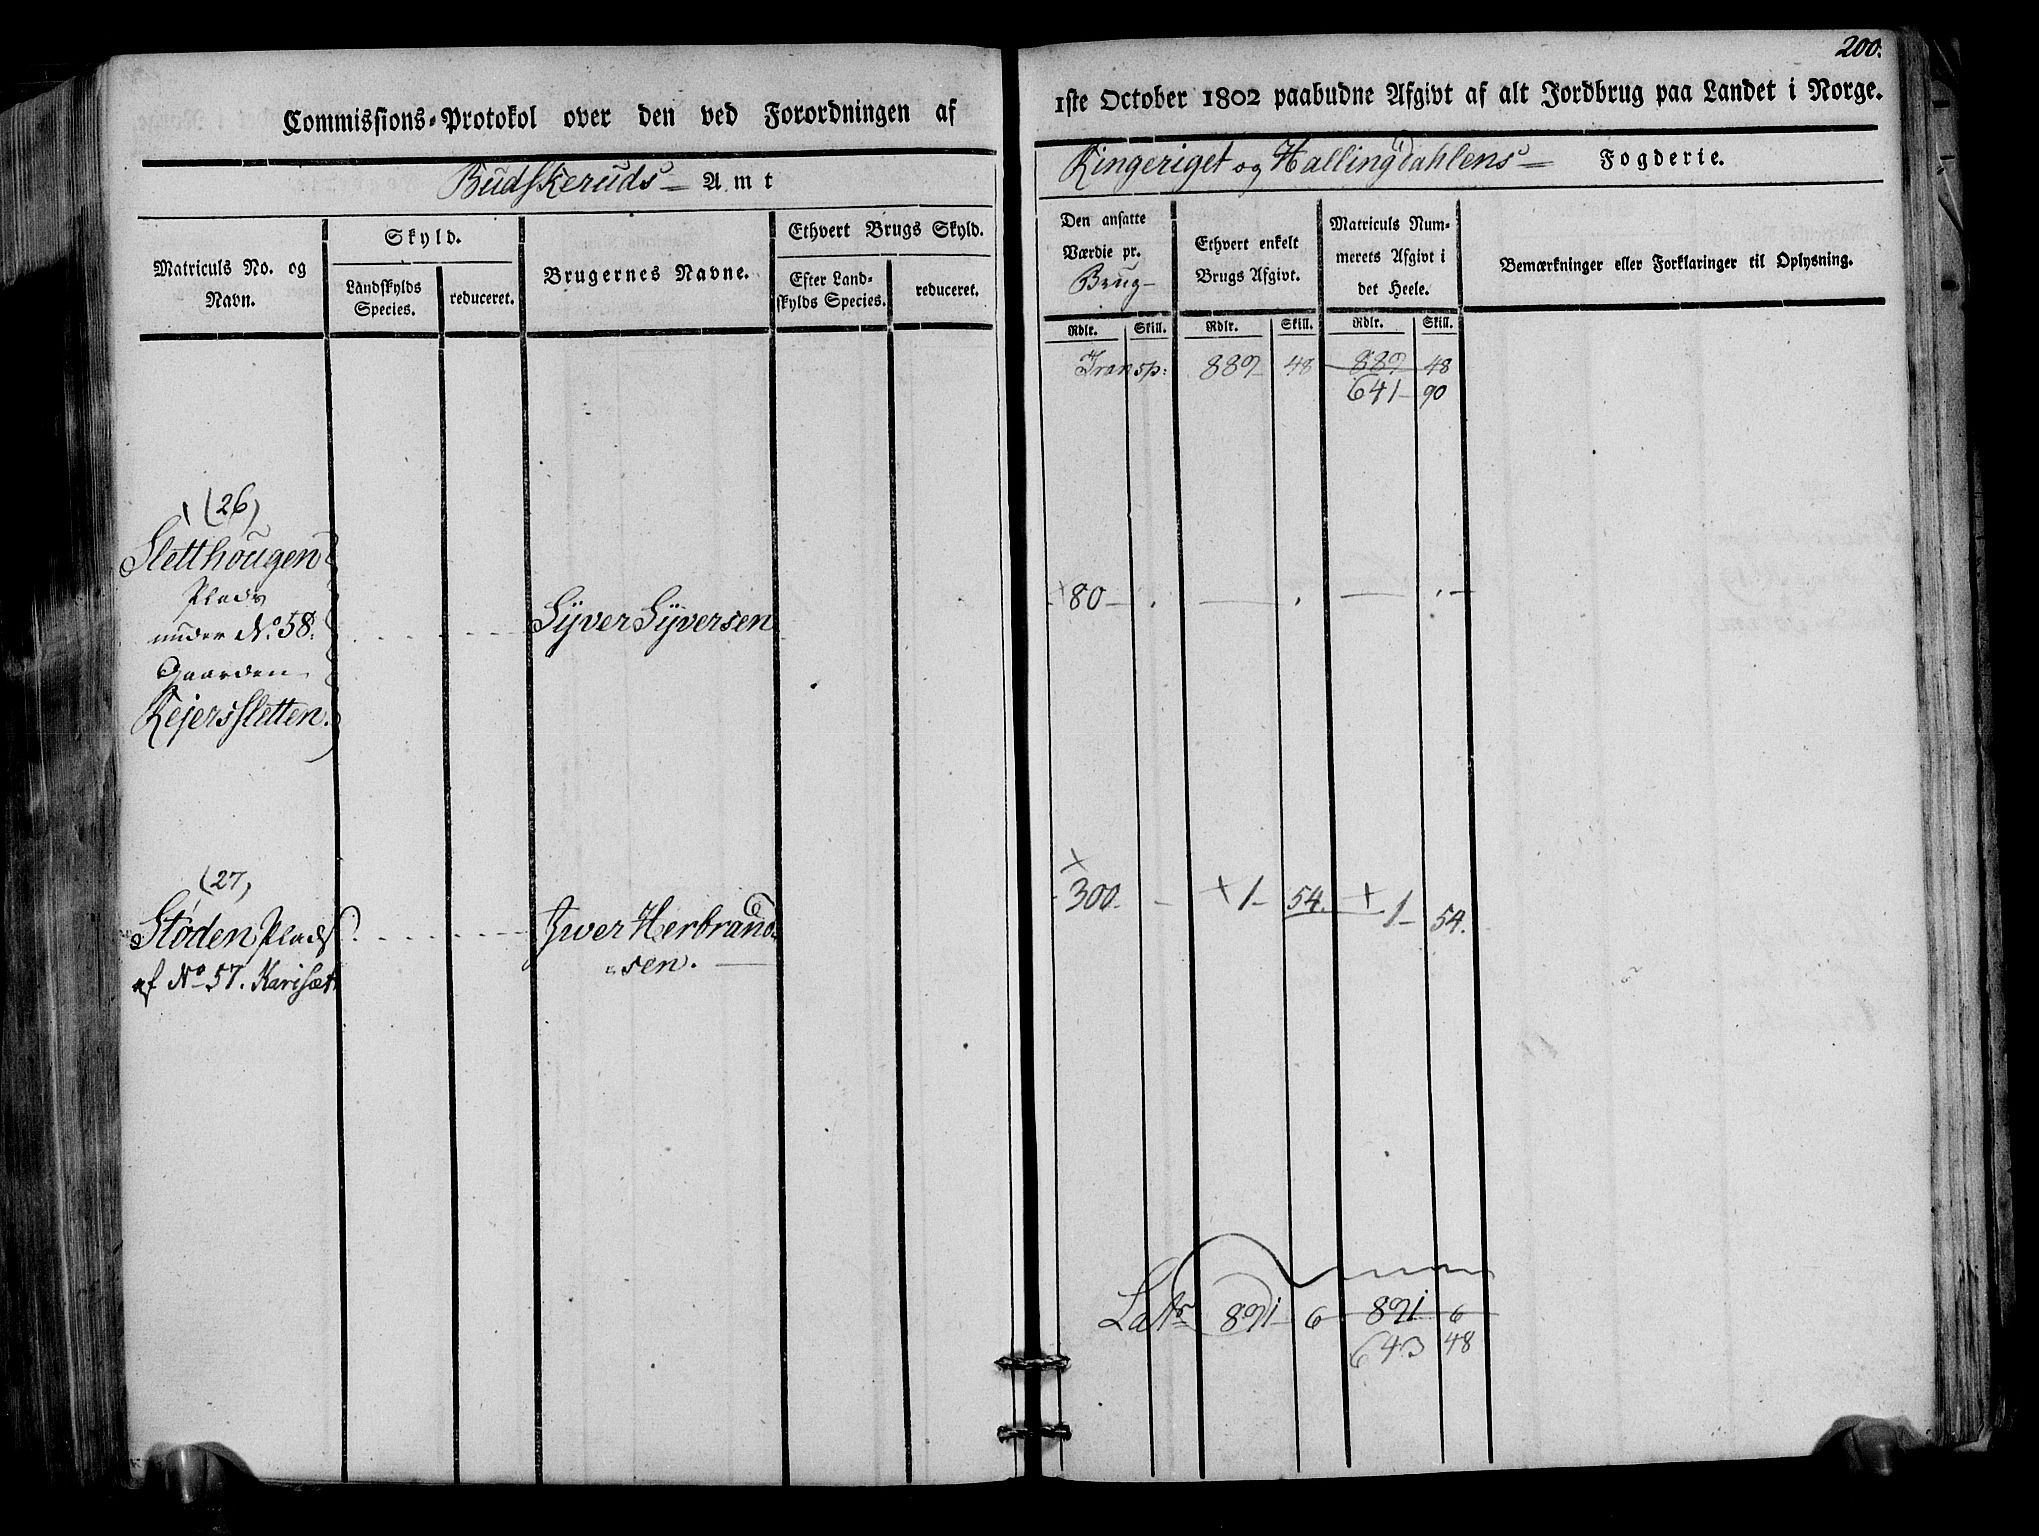 200.
Commissions-Protokol over den ved Forordningen af
1ste October 1802 paabudne Afgivt af alt Jordbrug paa Landet i Norge.
Budskeruds Amt
Ringeriget og Hallingdahlens Fogderie.
Matriculs No. og
Navn.
Skyld.
Landskylds
Species.
reduceret.
Brugernes Navne.
Ethvert Brugs Skyld.
Efter Land-
skylds Species.
reduceret.
Den ansatte
Værdie pr.
Brug
Ethvert enkelt
Brugs Afgivt.
Matriculs Num-
merets Afgivt i
det Heele.
Bemærkninger eller Forklaringer til Oplysning.
Rdlr. Skill. Rdlr. Skill. Rdlr. Skill.
Transp: 889 48 889 48
641 90
(26)
Sletthougen
Plads
under No 58.
Gaarden
Rejersletten.
Syver Syversen
80
(27)
Støden Plads
af No 57. Karisæt
Iver Herbrand
sen.
300. 1 54. 1 54.
Lats 891 6 891 6
643 48